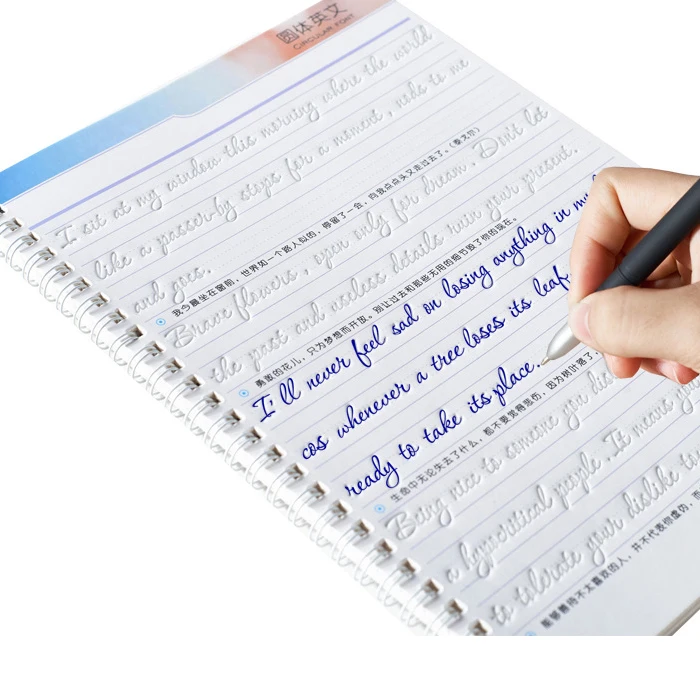 圆体英文
CIRCULAR FONT
I sit at my window this morning where the world
like a passer-by stops for a moment, nods to me
and goes.
我今晨坐在窗前，世界如一个路人似的，停留了一会，向我点点头又走过去了。（泰戈尔）
Brave flowers, open only for dream. Don't let
the past and useless details ruin your present.
勇敢的花儿，只为梦想而开放。别让过去和那些无用的细节毁了你的现在。
I'll never feel sad on losing anything in my
cos whenever a tree loses its leaf,
ready to take its place.
生命中无论失去了什么，都不要觉得悲伤，因为树叶落了，
Being nice to someone you dis
a hypocritical people. It means you
to tolerate your dislike to
能够善待不太喜欢的人，并不代表你虚伪，而